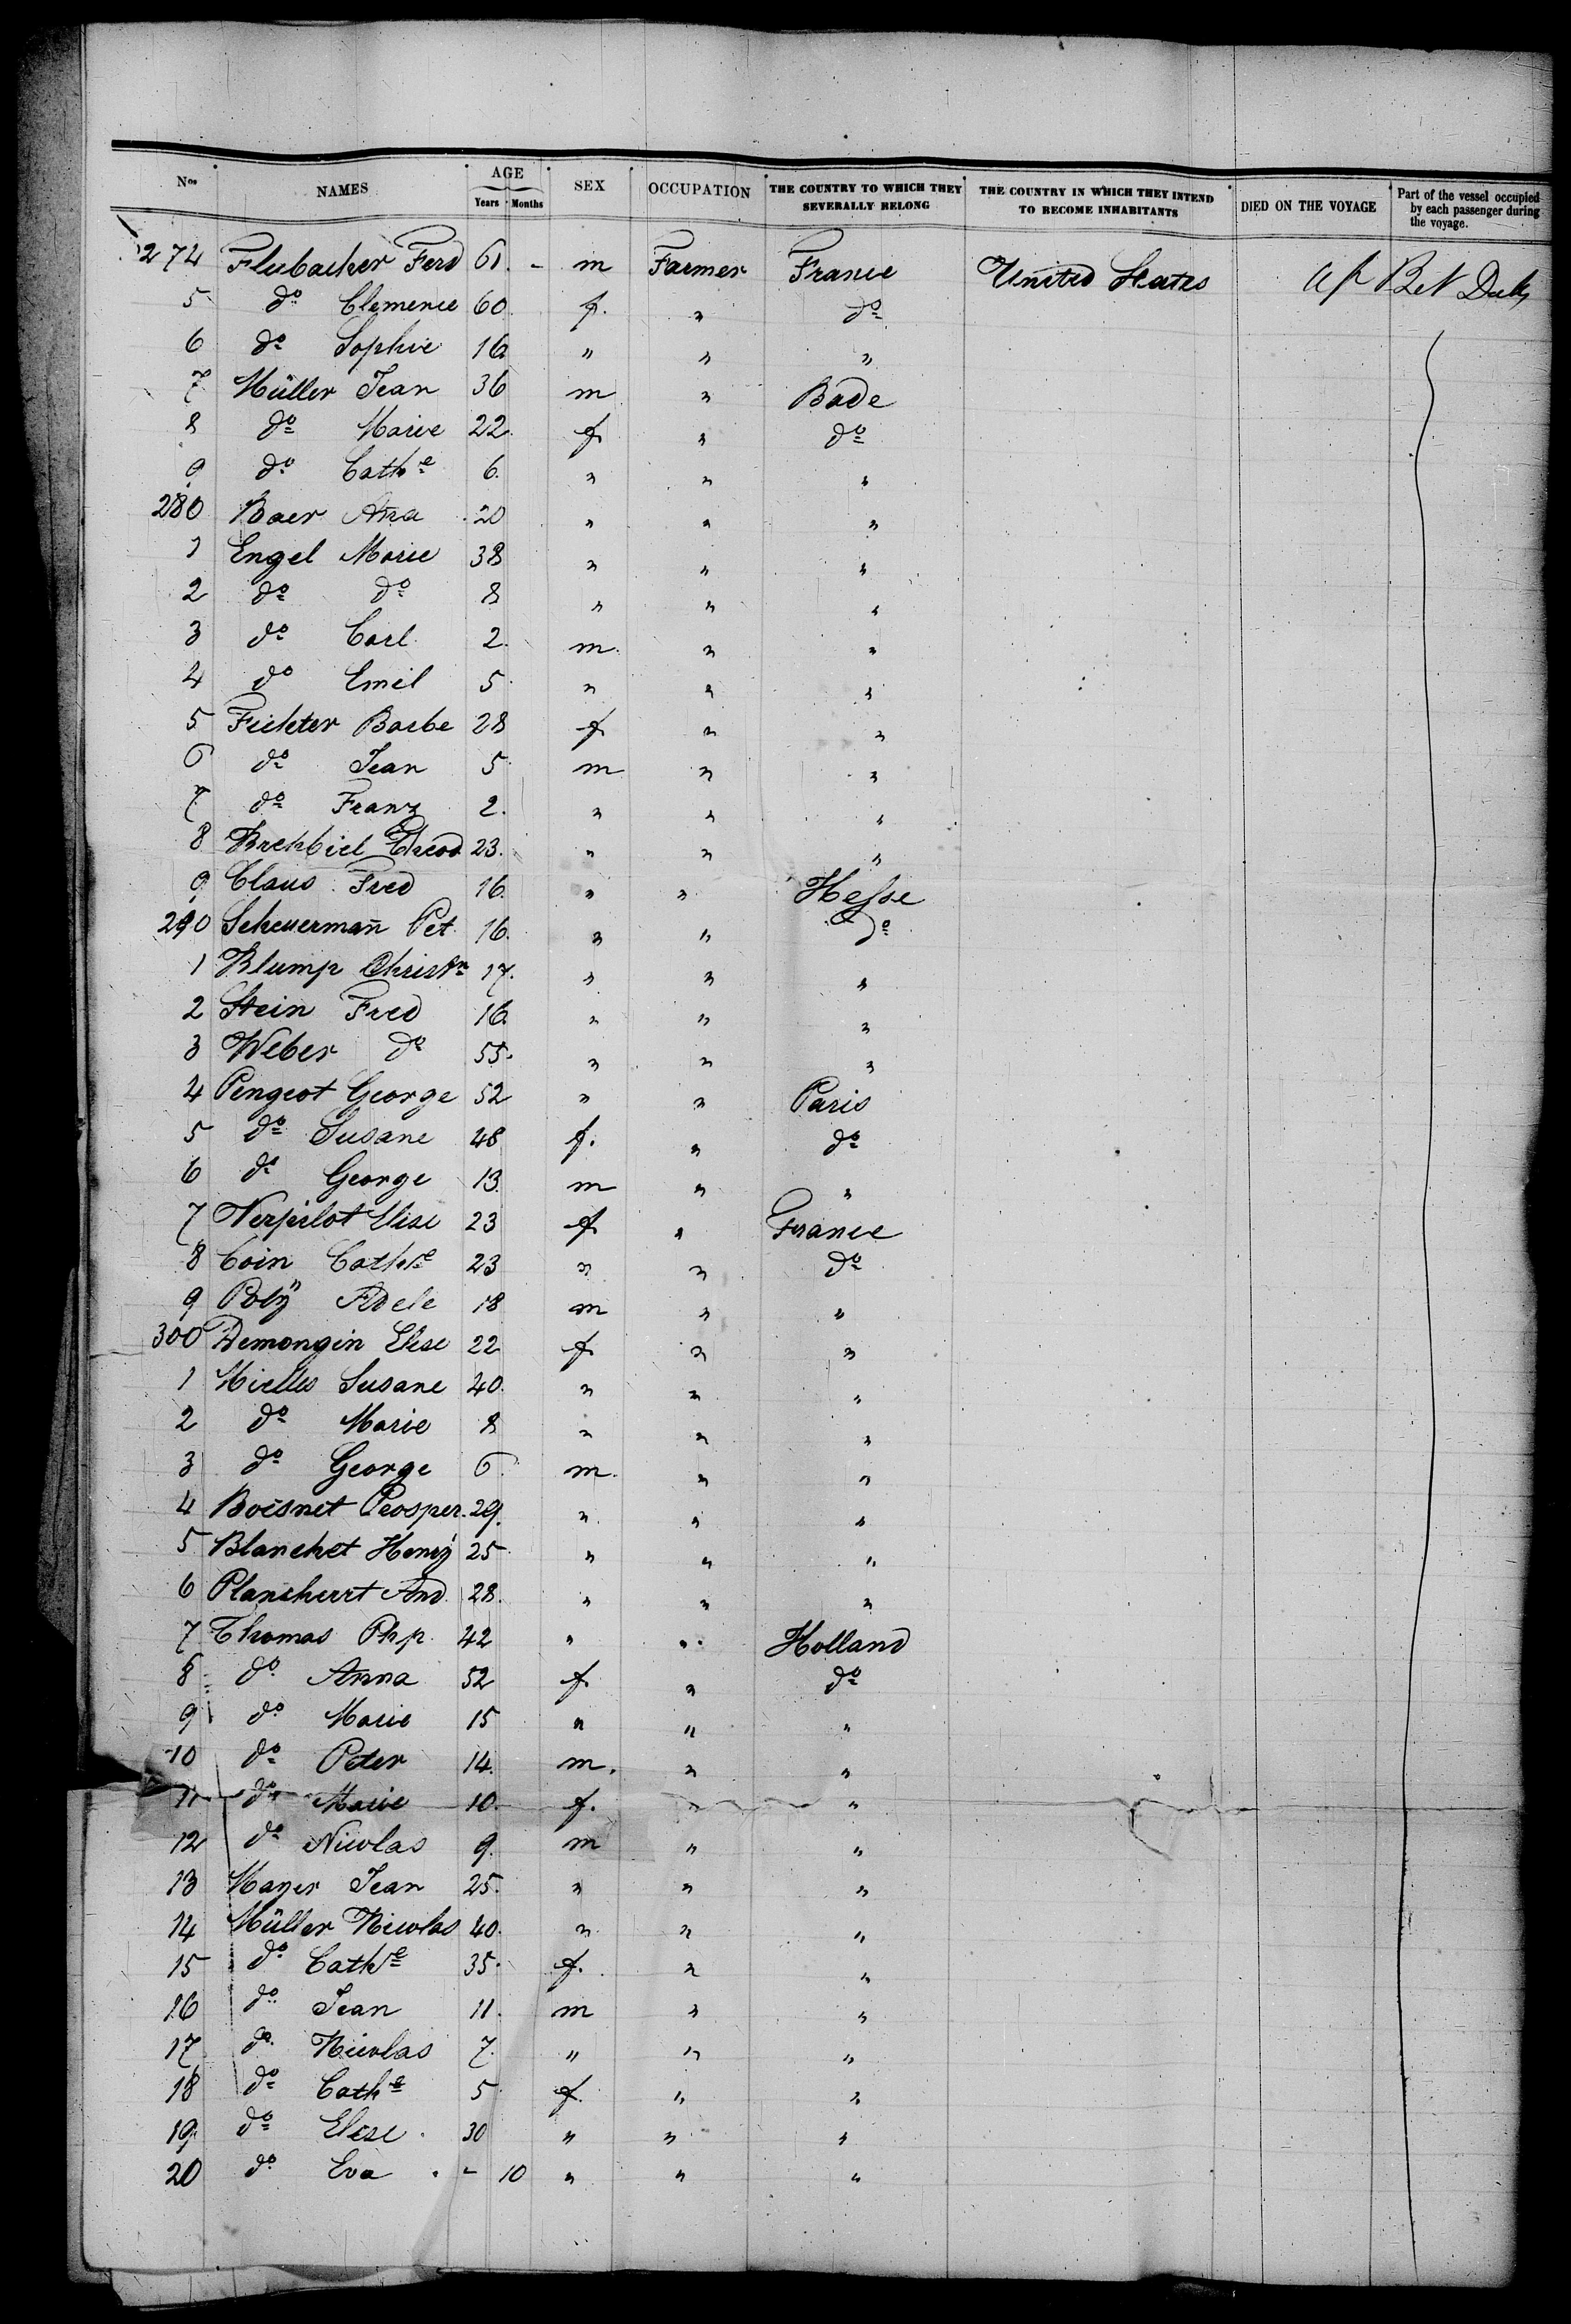 Nos NAMES AGE Years Months SEX OCCUPATION THE COUNTRY TO WHICH THEY SEVERALLY BELONG THE COUNTRY IN WHICH THEY INTEND TO BECOME INHABITANTS DIED ON THE VOYAGE Part of the vessel occupied by each passenger during the voyage.
274 Flubacher Ferd 61. - m Farmer France United States Bet Decks
5 do Clemence 60. f. " do
6 do Sophie 16 " " "
7 Müller Jean 36 m " Bade
8 do Marie 22. f " do
9 do Cathe 6. " " "
280 Baer Ana 20 " " "
1 Engel Marie 38 " " "
2 do do 8 " " "
3 do Carl 2. m. " "
4 do Emil 5. " " "
5 Fichter Barbe 28 f " "
6 do Jean 5. m " "
7 do Franz 2. " " "
8 Brehbiel Theod 23. " " "
9 Claus Fred 16. " " Hesse
290 Scheuermann Pet 16. " " do
1 Klump Christn 17. " " "
2 Stein Fred 16. " " "
3 Weber do 55. " " "
4 Peugeot George 52 " " Paris
5 do Susane 48 f. " do
6 do George 13. m " "
7 Verpilot Elise 23 f " France
8 Coin Cathe 23 " " do
9 Poly Adele 18 m " "
300 Demongin Elise 22 f " "
1 Mielles Susane 40. " " "
2 do Marie 8 " " "
3 do George 6. m. " "
4 Boisnet Prosper. 29. " " "
5 Blanchet Henry 25 " " "
6 Plancherrt And 28. " " "
7 Thomas Php. 42 " " Holland
8 do Anna 52 f. " do
9 do Marie 15 " " "
10 do Peter 14. m. " "
11 do Marie 10. f. " "
12 do Nicolas 9. m " "
13 Mayer Jean 25. " " "
14 Müller Nicolas 40. " " "
15 do Cathe 35. f. " "
16 do Jean 11. m " "
17 do Nicolas 7. " " "
18 do Cathe 5 f. " "
19 do Elise. 30 " " "
20 do Eva. - 10 " " "